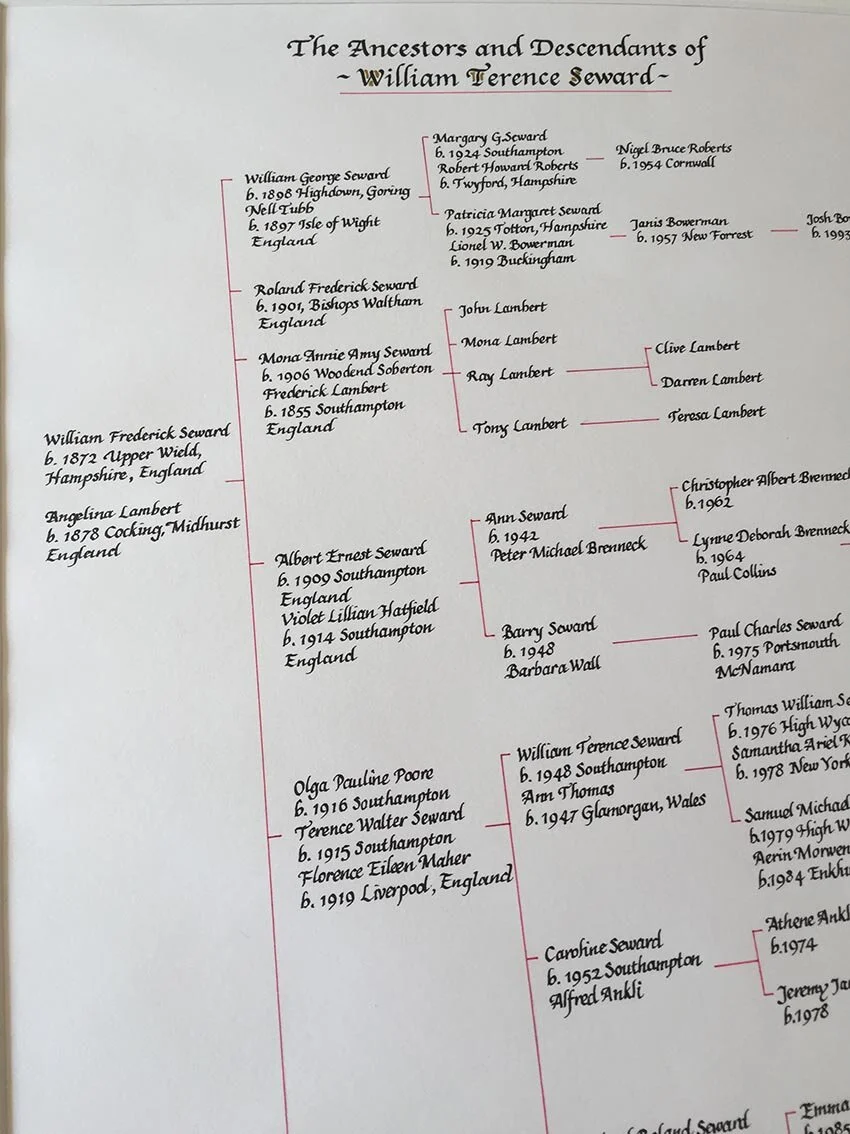 The Ancestors and Descendants of
~ William Terence Seward ~
William Frederick Seward
b. 1872 Upper Wield,
Hampshire, England
Angelina Lambert
b. 1878 Cocking, Midhurst
England
William George Seward
b. 1898 Highdown, Goring
Nell Tubb
b. 1897 Isle of Wight
England
Margary G.Seward
b. 1924 Southampton
Robert Howard Roberts
b. Twyford, Hampshire
Nigel Bruce Roberts
b. 1954 Cornwall
Patricia Margaret Seward
b. 1925 Totton, Hampshire
Lionel W. Bowerman
b. 1919 Buckingham
Janis Bowerman
b. 1957 New Forrest
Josh Bo
b. 1993
Roland Frederick Seward
b. 1901, Bishops Waltham
England
Mona Annie Amy Seward
b. 1906 Woodend Soberton
Frederick Lambert
b. 1855 Southampton
England
John Lambert
Mona Lambert
Ray Lambert
Clive Lambert
Darren Lambert
Tony Lambert
Teresa Lambert
Albert Ernest Seward
b. 1909 Southampton
England
Violet Lillian Hatfield
b. 1914 Southampton
England
Ann Seward
b. 1942
Peter Michael Brenneck
Christopher Albert Brenneck
b.1962
Lynne Deborah Brenneck
b. 1964
Paul Collins
Barry Seward
b. 1948
Barbara Wall
Paul Charles Seward
b. 1975 Portsmouth
McNamara
Olga Pauline Poore
b. 1916 Southampton
Terence Walter Seward
b. 1915 Southampton
Florence Eileen Maher
b. 1919 Liverpool, England
William Terence Seward
b. 1948 Southampton
Ann Thomas
b. 1947 Glamorgan, Wales
Thomas William Se
b. 1976 High Wyc
Samantha Ariel K
b. 1978 New York
Samuel Michae
b.1979 High W
Aerin Morwen
b.1984 Enkhu
Caroline Seward
b. 1952 Southampton
Alfred Ankli
Athene Ankl
b.1974
Jeremy Ja
b.1978
Roland Seward
Emma
b.1985